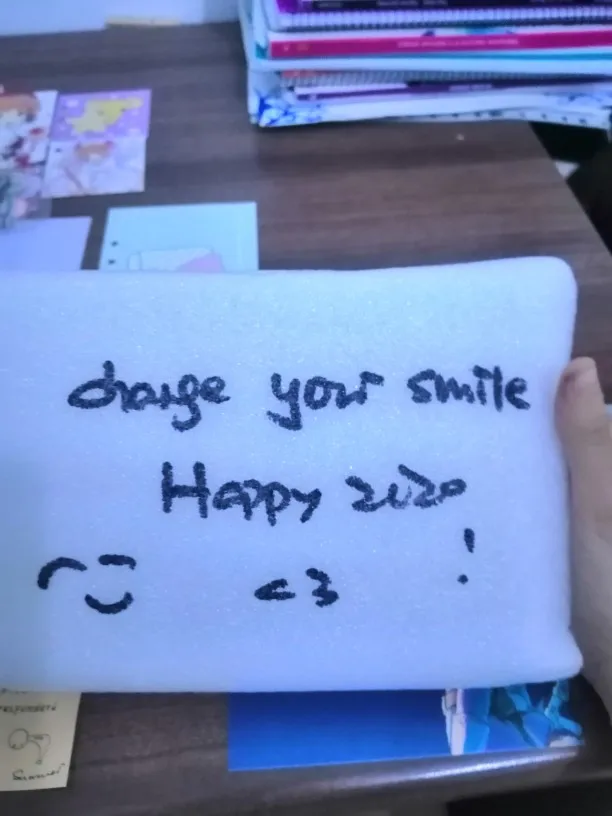 charge your smile
Happy 2020
<3 !
Summer